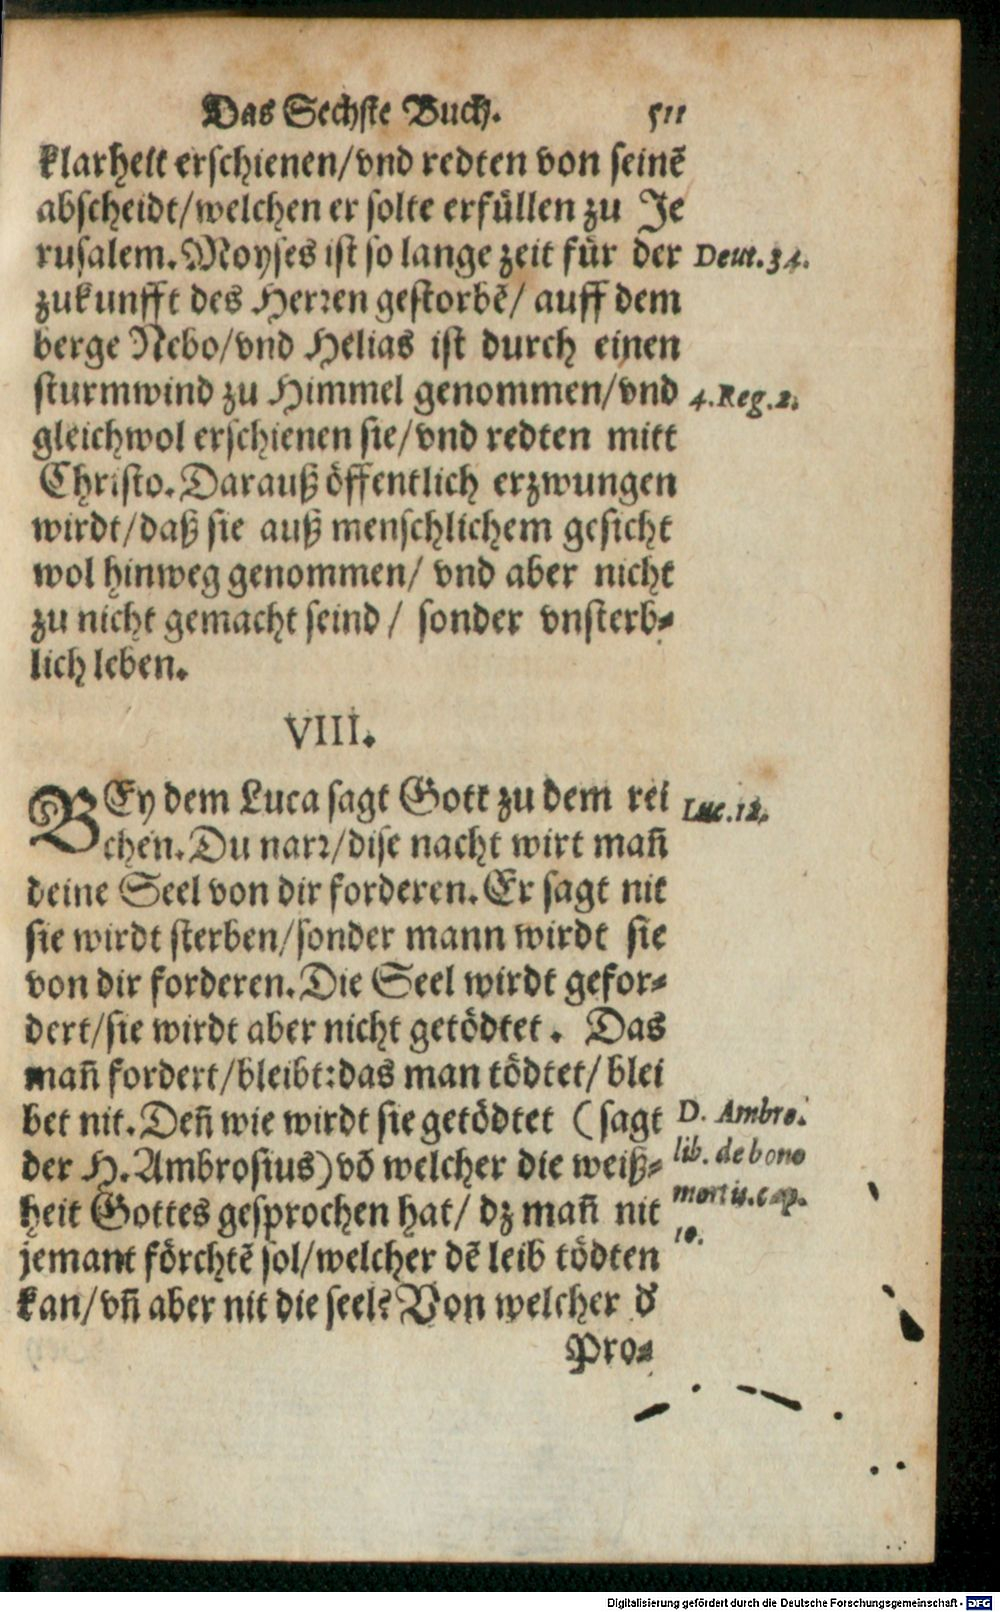 Das Sechste Buch. 511
klarheit erschienen/vnd redten von seinē
abscheidt/welchen er solte erfüllen zu Je
rusalem. Moyses ist so lange zeit für der Deut.34.
zukunfft des Herren gestorbē/ auff dem
berge Nebo/vnd Helias ist durch einen
sturmwind zu Himmel genommen/vnd 4.Reg.2.
gleichwol erschienen sie/vnd redten mitt
Christo. Darauß öffentlich erzwungen
wirdt/daß sie auß menschlichem gesicht
wol hinweg genommen/ vnd aber nicht
zu nicht gemacht seind/ sonder vnsterb-
lich leben.
VIII.
BEy dem Luca sagt Gott zu dem rei Luc.12.
chen. Du narr/dise nacht wirt mañ
deine Seel von dir forderen. Er sagt nit
sie wirdt sterben/sonder mann wirdt sie
von dir forderen. Die Seel wirdt gefor-
dert/sie wirdt aber nicht getödtet. Das
mañ fordert/bleibt:das man tödtet/blei
bet nit. Deñ wie wirdt sie getödtet (sagt D. Ambro.
der H. Ambrosius) vō welcher die weiß- lib. de bono
heit Gottes gesprochen hat/ dz mañ nit mortis. cap.
jemant förchtē sol/welcher dē leib tödten 10.
kan/vñ aber nit die seel? Von welcher d̄
Pro-
Digitalisierung gefördert durch die Deutsche Forschungsgemeinschaft - DFG